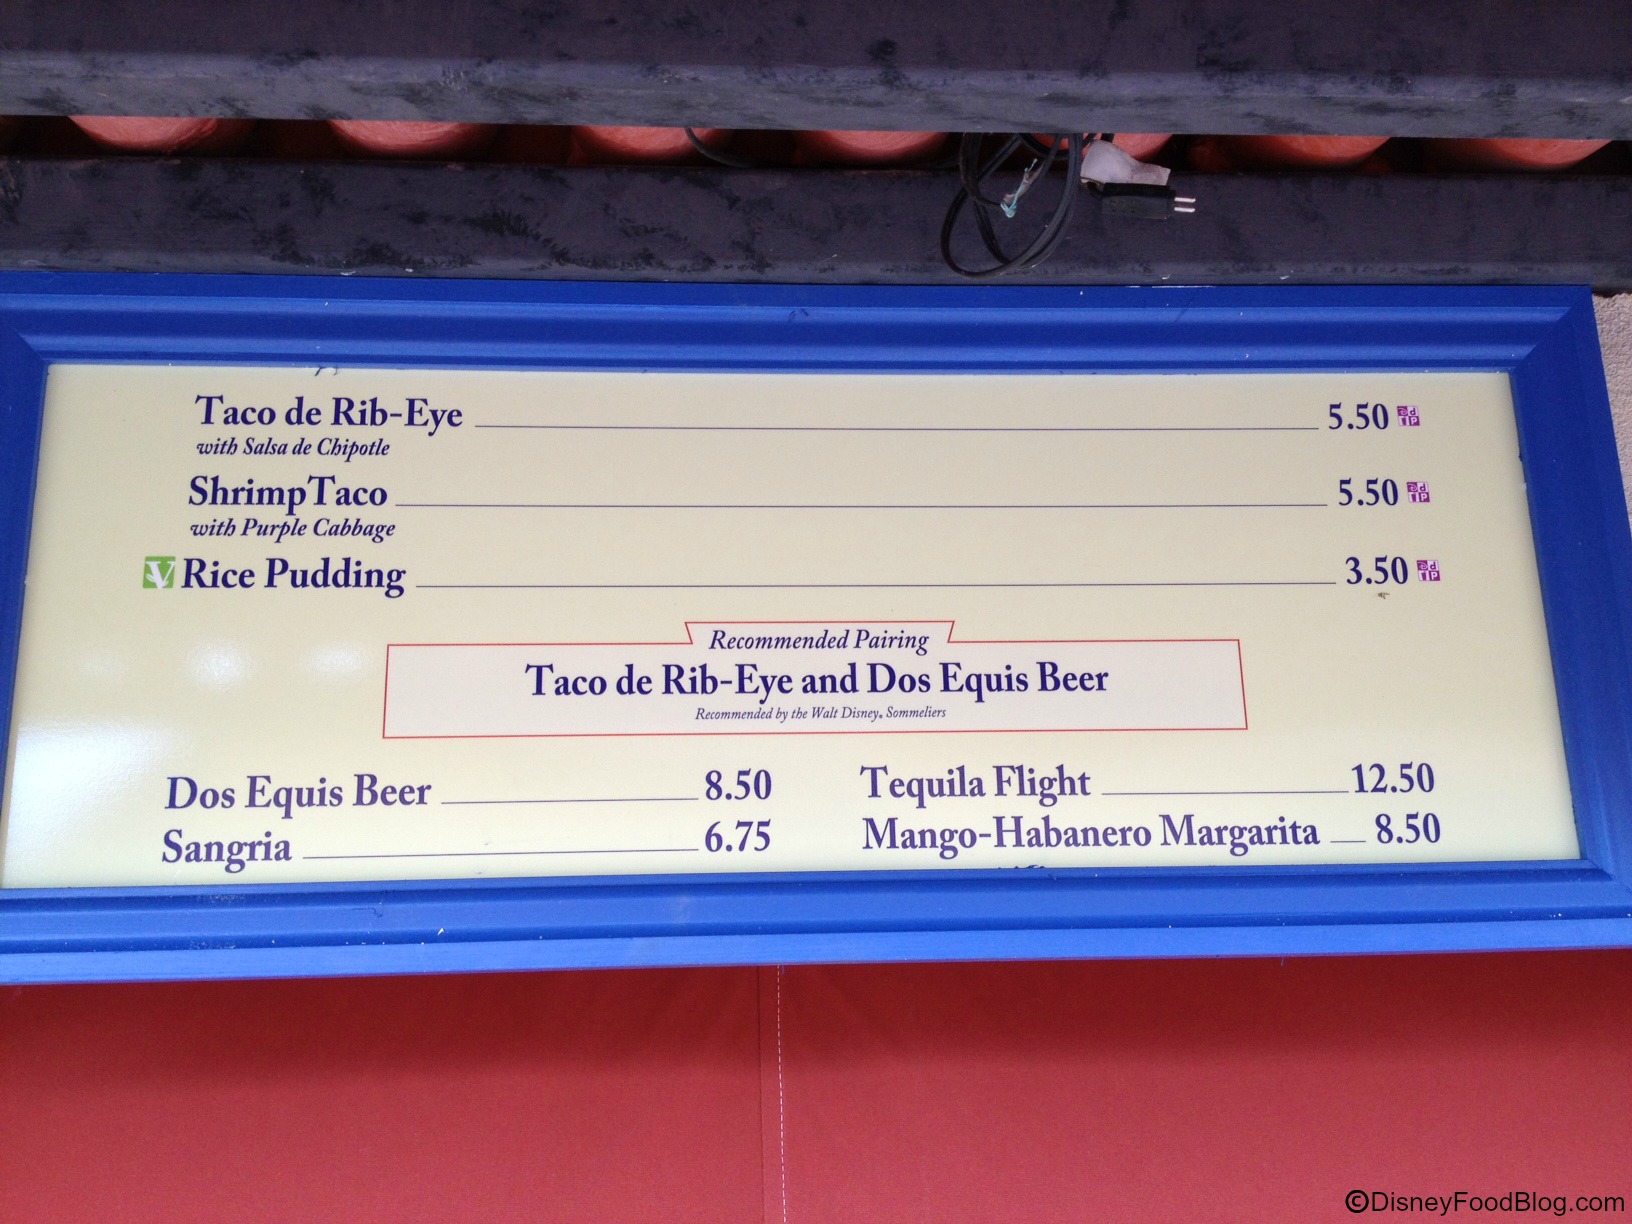 Taco de Rib-Eye 5.50
with Salsa de Chipotle
Shrimp Taco 5.50
with Purple Cabbage
V Rice Pudding 3.50
Recommended Pairing
Taco de Rib-Eye and Dos Equis Beer
Recommended by the Walt Disney® Sommeliers
Dos Equis Beer 8.50
Sangria 6.75
Tequila Flight 12.50
Mango-Habanero Margarita 8.50
©DisneyFoodBlog.com